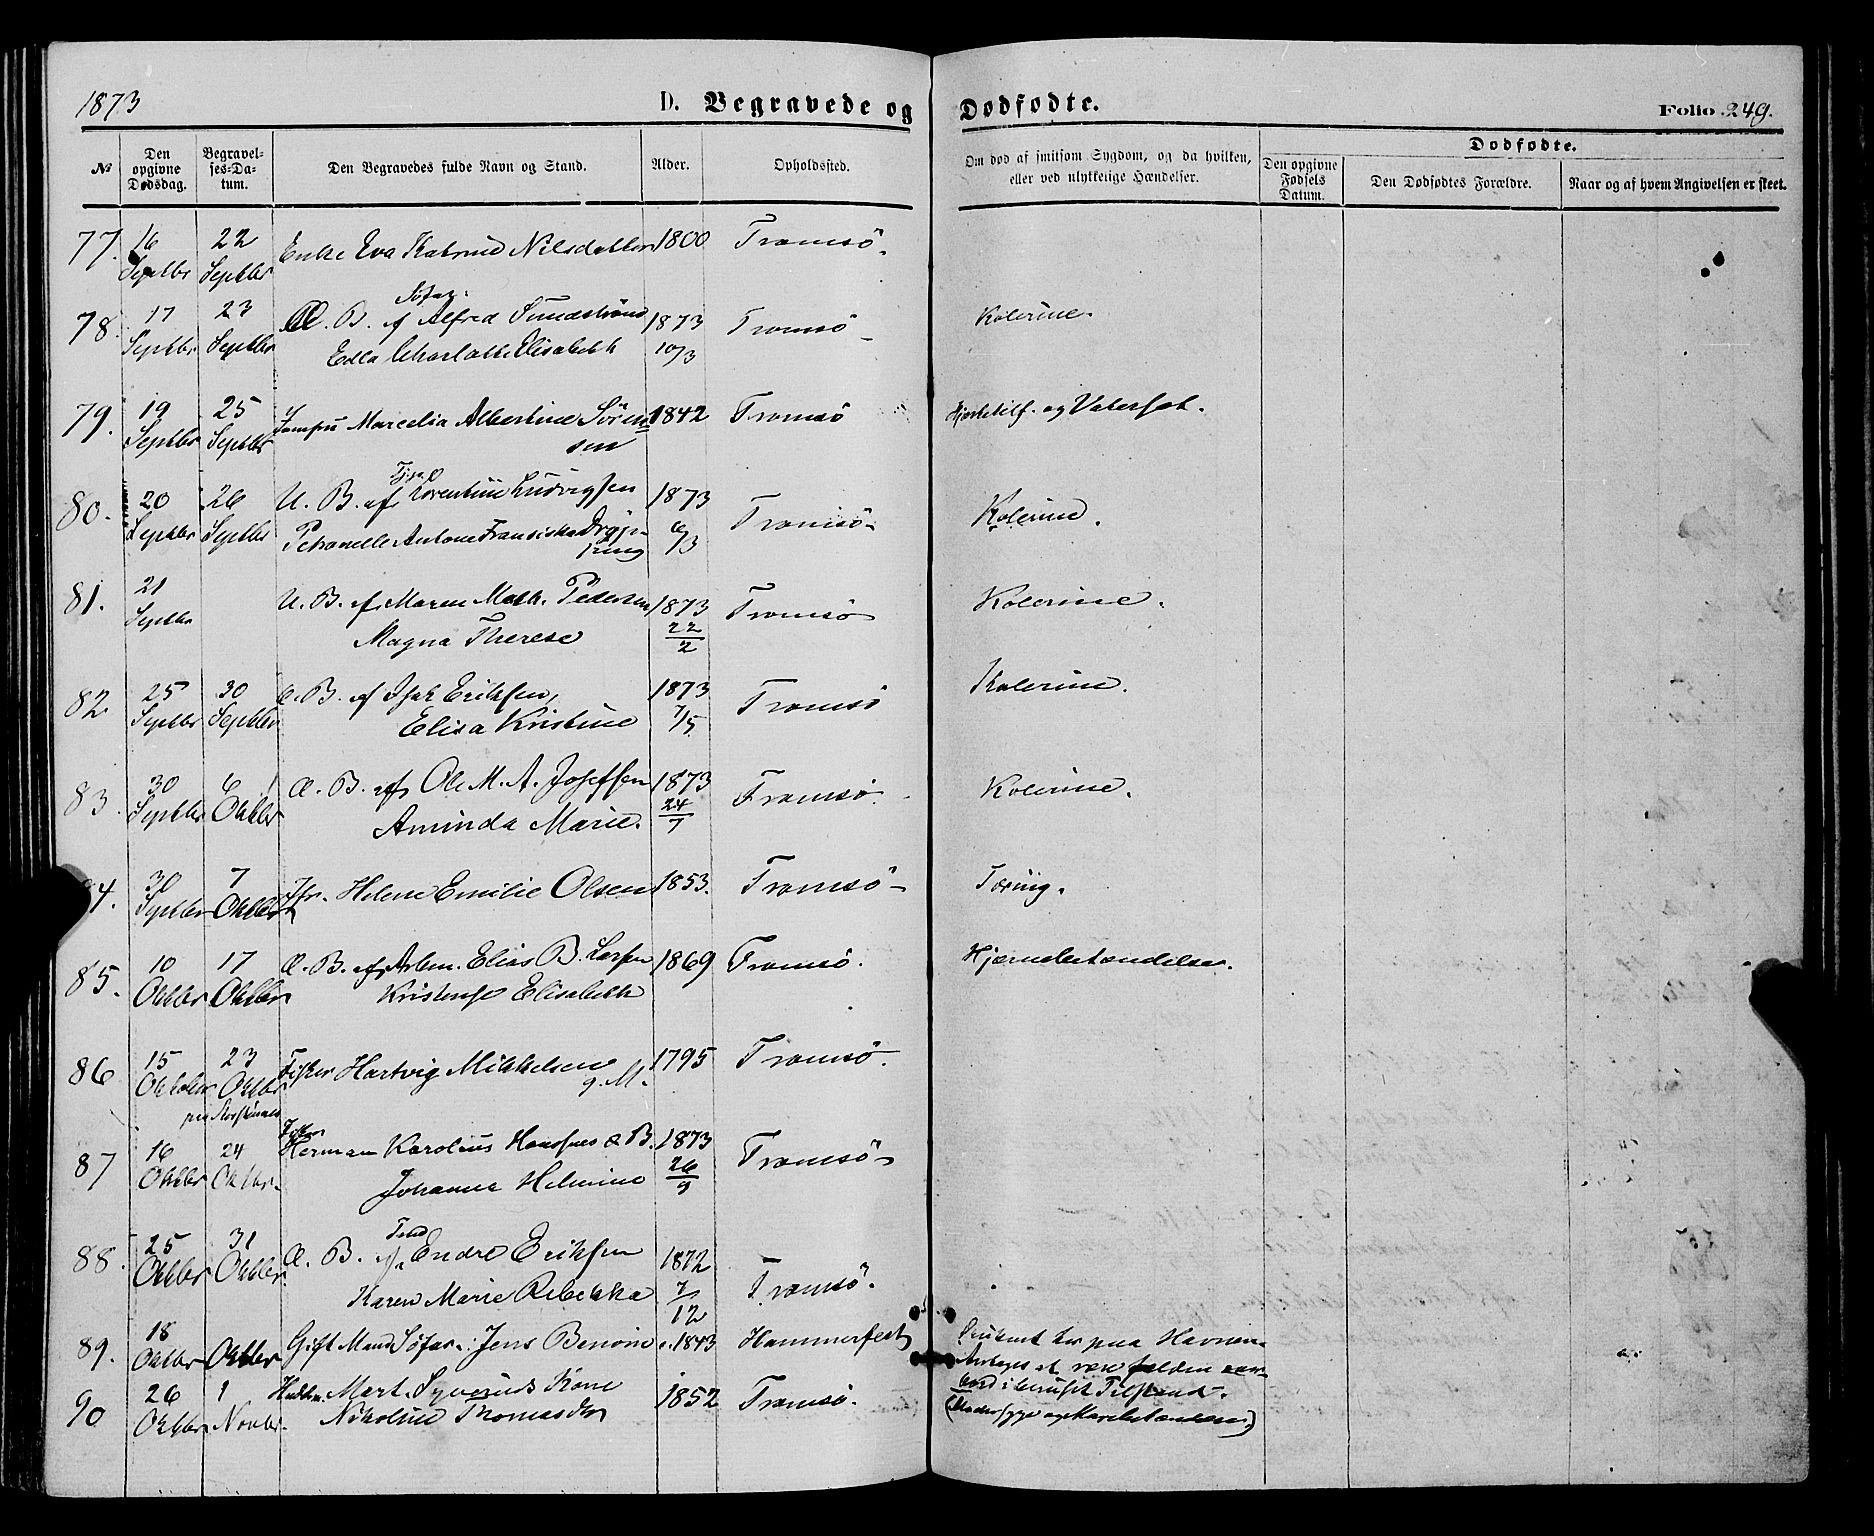 1873
D. Begravede og Dødfødte.
Folio 249.
№
Den opgivne Dødsdag.
Begravelses-Datum.
Den Begravedes fulde Navn og Stand.
Alder.
Opholdssted.
Om død af smitsom Sygdom, og da hvilken, eller ved ulykkelige Hændelser.
Dødfødte.
Den opgivne Fødsels Datum.
Den Dødfødtes Forældre.
Naar og af hvem Angivelsen er skeet.
77. 16 Septbr 22 Septbr Enke Eva Katrine Nilsdatter 1800 Tromsö.
78. 17 Septbr 23 Septbr Æ. B. af Söfar. Alfred Sundström 1873 Tromsö Kolerine.
Edla Charlotte Elisabeth 10/3
79. 19 Septbr 25 Septbr Jomfru Marcelia Albertine Sören- 1842 Tromsö Hjertetilf. og Vatersot.
sen
80. 20 Septbr 26 Septbr U. B. af Lorentine Ludvigsen 1873 Tromsö Kolerine.
Petronelle Antone Fransiska 6/3
81. 21 Septbr U. B. af Maren Math. Pedersen 1873 Tromsö Kolerine.
Magna Therese 22/2
82 25 Septbr 30 Septbr Æ. B. af Isak Eriksen, 1873 Tromsö Kolerine.
Elisa Kristine 7/5
83. 30 Septbr 6 Oktbr Æ. B. af Ole M. A. Josefsen 1873 Tromsö. Kolerine.
Aminda Marie. 24/7
84. 30 Septbr 7 Oktbr Jfr. Helene Emilie Olsen 1853. Tromsö Tæring.
85. 10 Oktbr 17 Oktbr Æ. B. af Arbm. Elias B. Larsen 1869 Tromsö. Hjærnebetændelse.
Kristense Elisabeth
86 15 Oktober 23 Oktbr Fisker Hartvig Mikkelsen 1795 Tromsö.
g. M.
87 16 Oktbr 24 Oktbr. Fisker Herman Karolius Hansens Æ B. 1873 Tromsö
Johanna Helmine 26/9
88. 25 Oktbr 31 Oktbr Æ. B. af Endre Eriksen 1872 Tromsö.
Karen Marie Rebekka 7/12
89. 18 Oktbr Oktbr Gift Mand Söfar.: Jens Benoni c. 1843 Hammerfest Druknet her paa Havnen.
Antages at være falden over-
bord i beruset Tilstand.
90 26 Oktbr 1 Novbr. Mart. Syversens Kone 1852 Tromsö.
Nikoline Thomasdtr